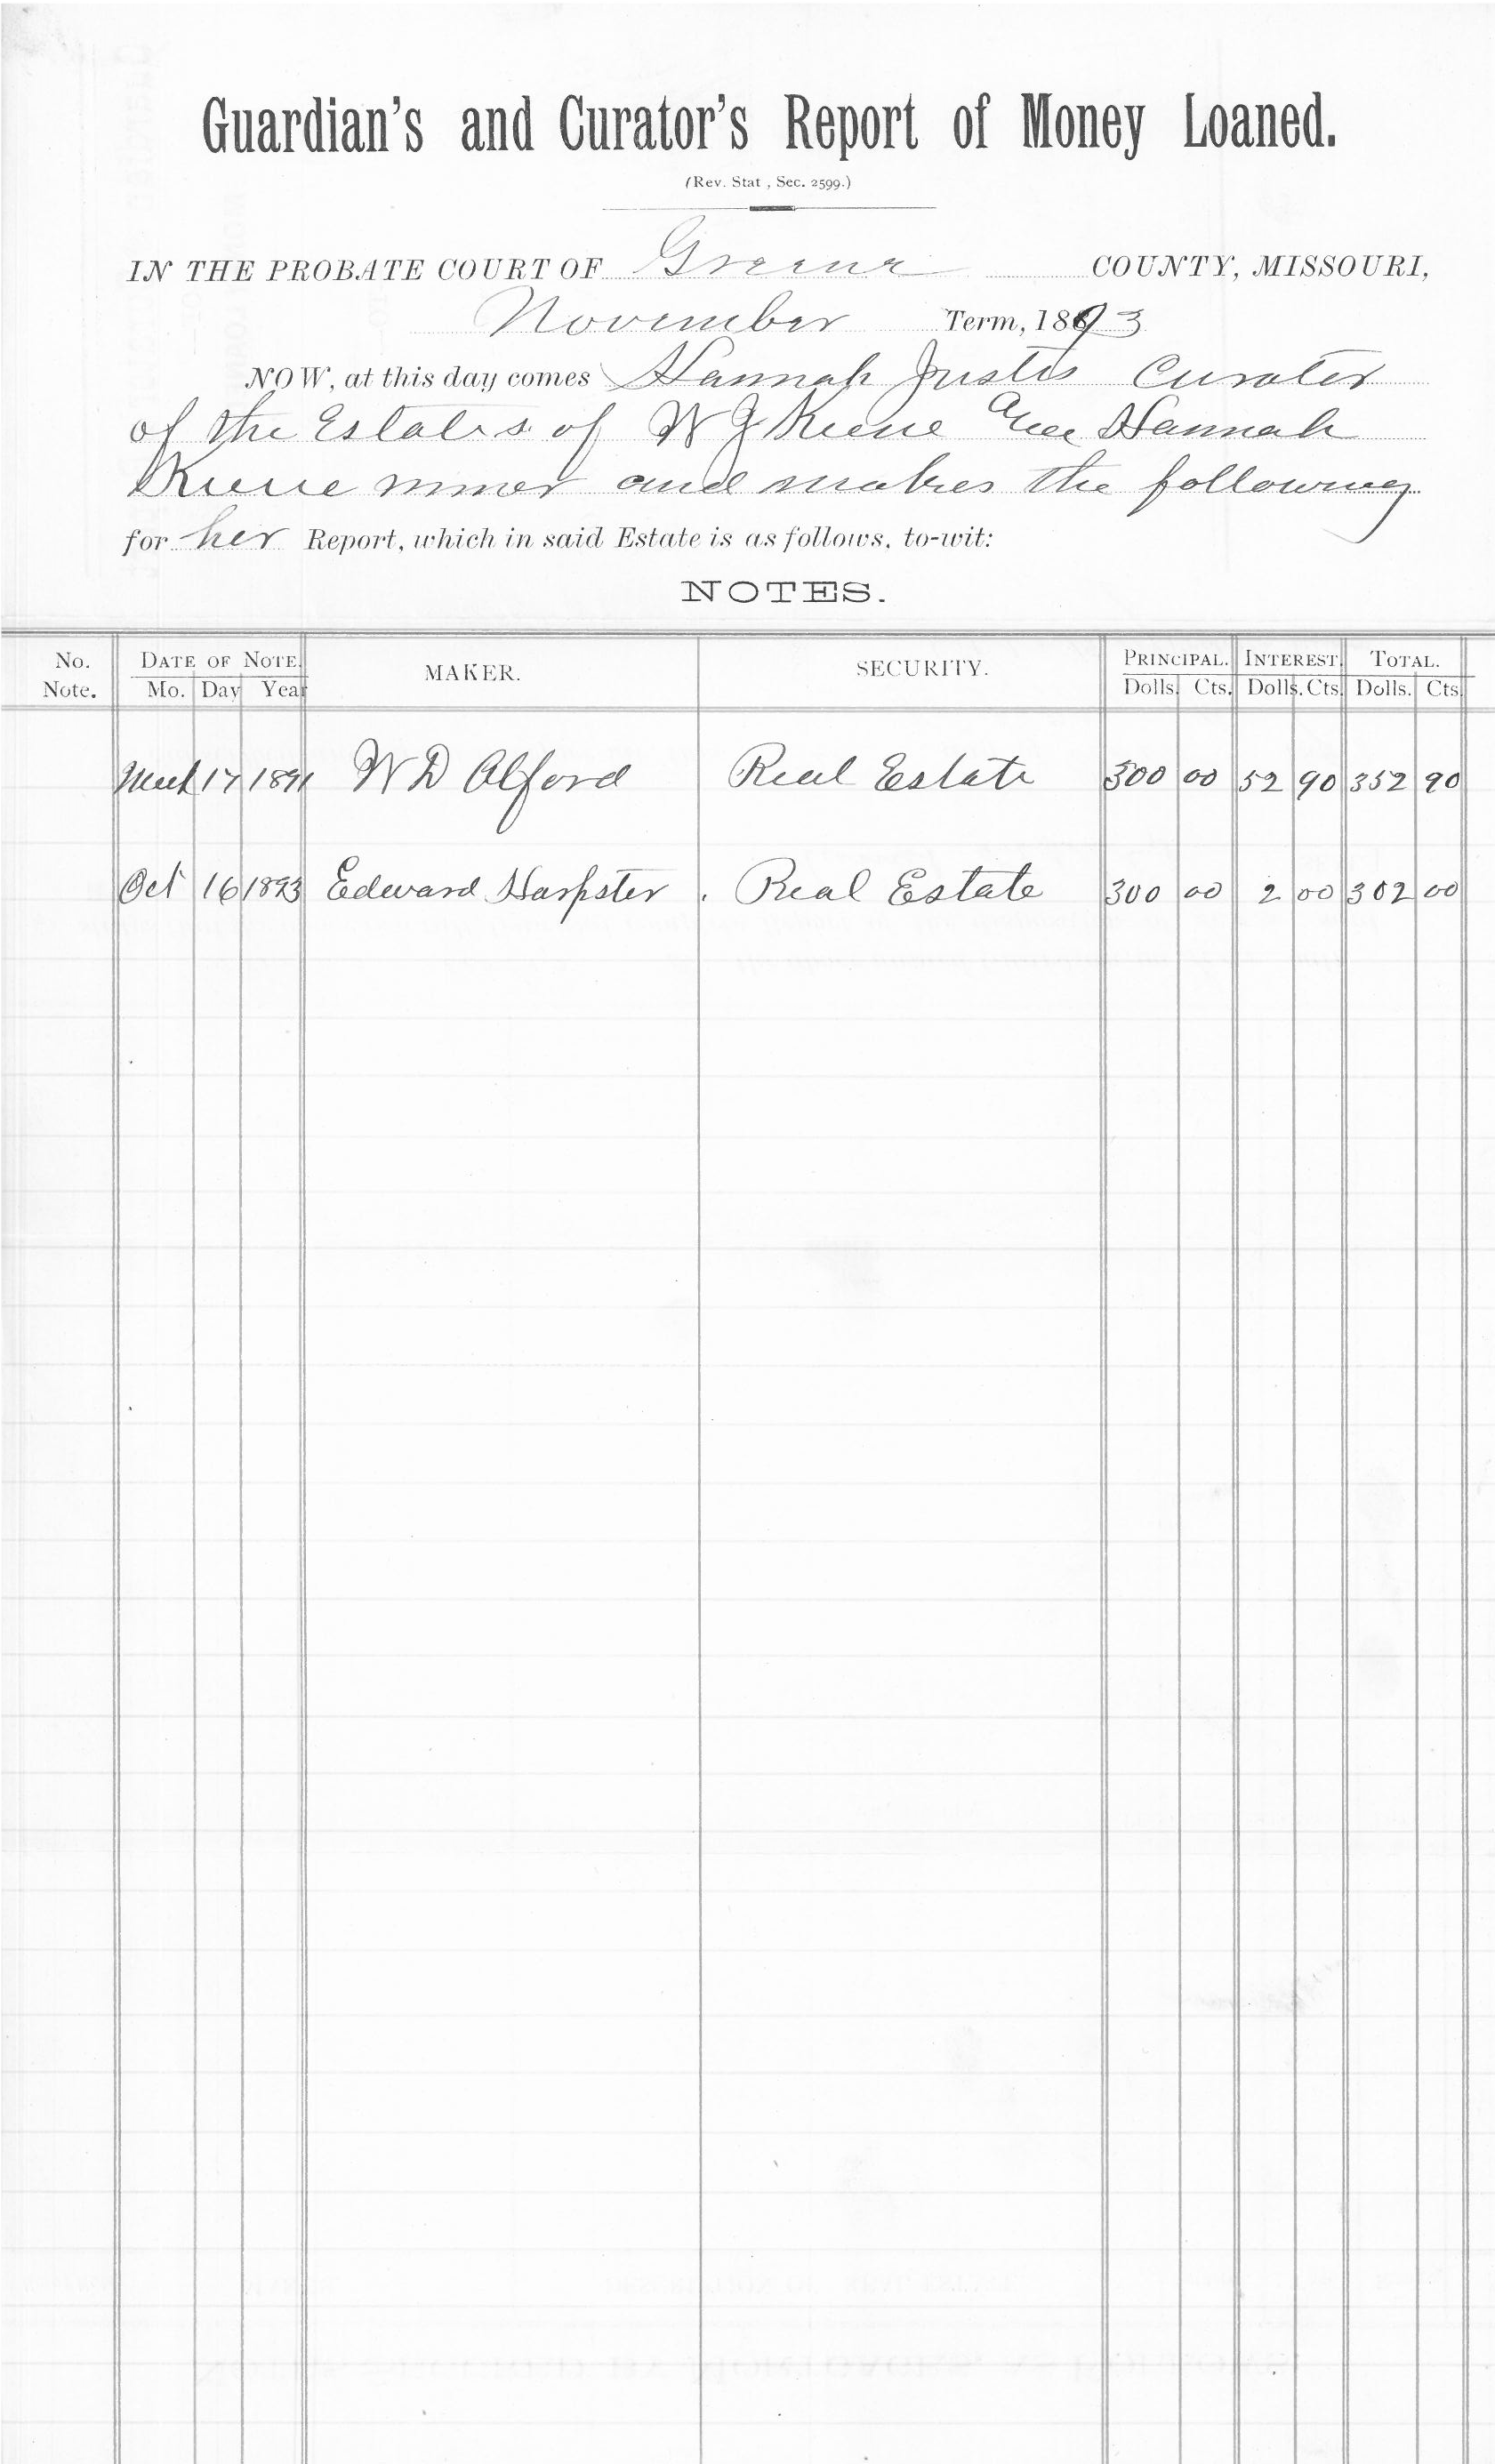 Guardian's and Curator's Report of Money Loaned.
(Rev. Stat , Sec. 2599.)
IN THE PROBATE COURT OF Greene COUNTY, MISSOURI,
November Term, 1893
NOW, at this day comes Hannah Justis Curator
of the Estates of W J Keene and Hannah
Keene minor and makes the following
for her Report, which in said Estate is as follows, to-wit:
NOTES.
No. Note. DATE OF NOTE. MAKER. SECURITY. PRINCIPAL. INTEREST. TOTAL.
Mo. Day Year Dolls. Cts. Dolls. Cts. Dolls. Cts.
March 17 1891 W D Alford Real Estate 300 00 52 90 352 90
Oct 16 1893 Edward Harpster . Real Estate 300 00 2 00 302 00